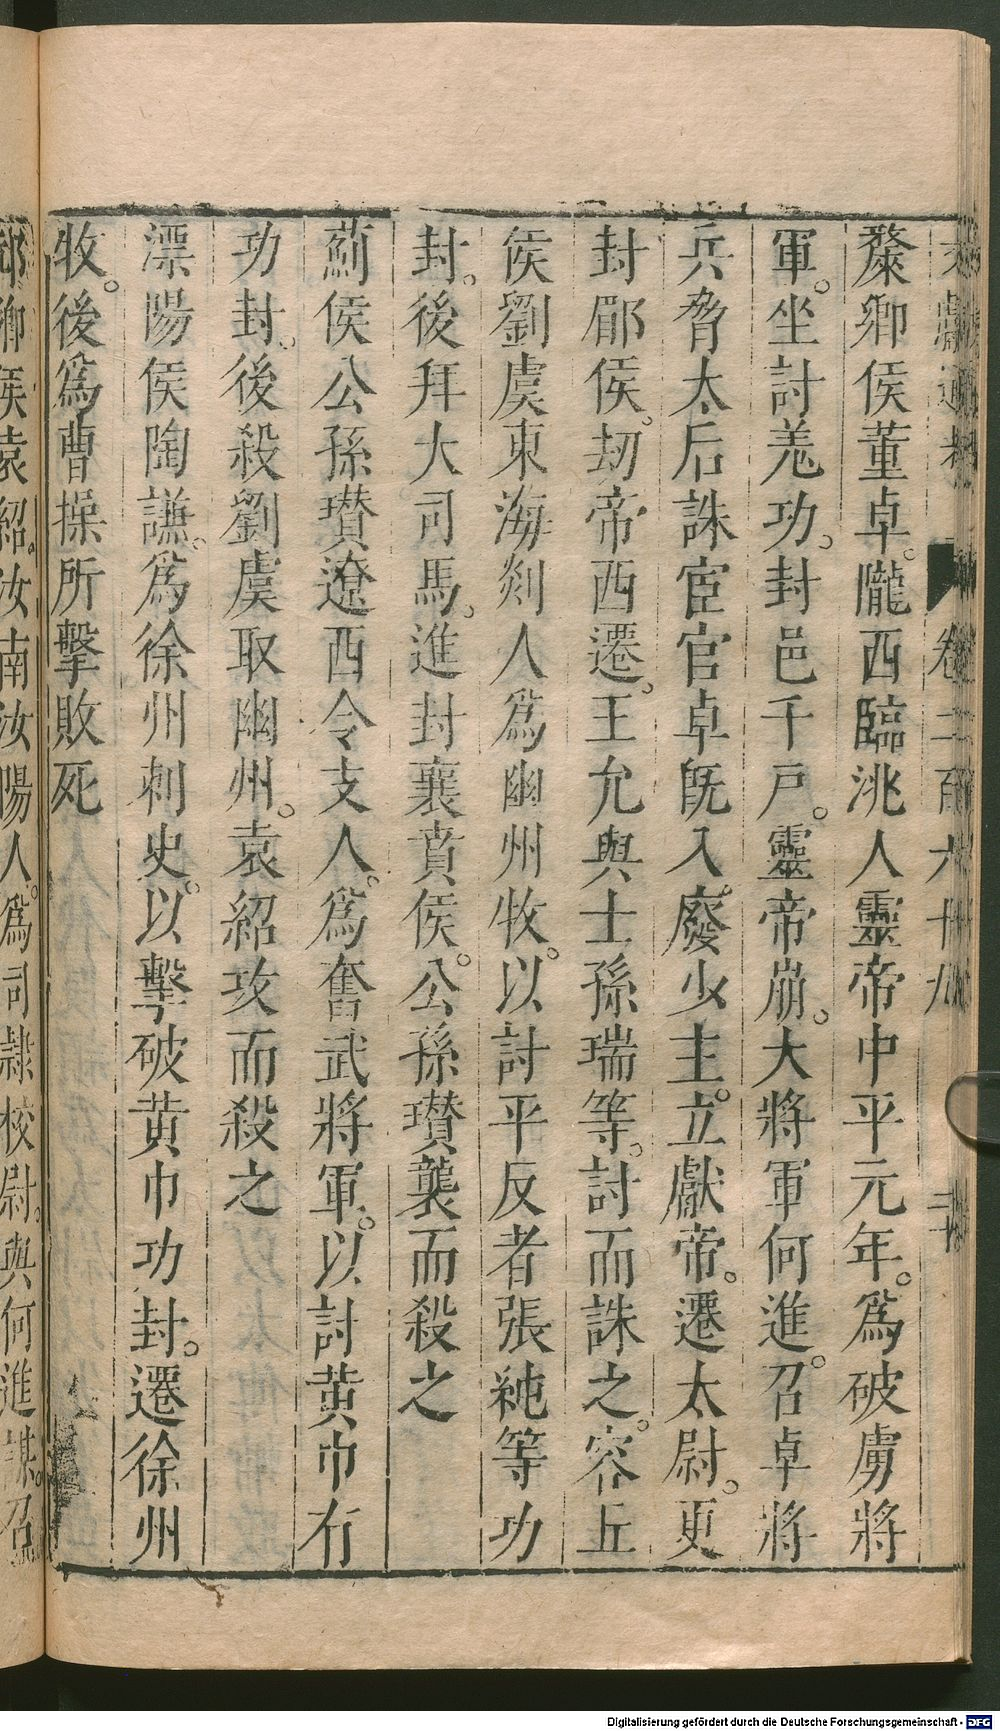 文獻通考 卷二百六十九
斄鄉侯董卓。隴西臨洮人靈帝中平元年。爲破虜將
軍。坐討羗功。封邑千戸。靈帝崩。大將軍何進。召卓將
兵脅太后誅宦官卓旣入。廢少主。立獻帝。遷太尉。更
封郿侯。刼帝西遷。王允與士孫瑞等。討而誅之。容丘
侯劉虞東海剡人爲幽州牧。以討平反者張純等功
封。後拜大司馬。進封襄賁侯。公孫瓚襲而殺之
薊侯公孫瓚遼西令支人。爲奮武將軍。以討黄巾有
功封。後殺劉虞取幽州。袁紹攻而殺之
漂陽侯陶謙。爲徐州刺史。以擊破黄巾功封。遷徐州
牧。後爲曹操所擊敗死
邟鄉侯袁紹。汝南汝陽人。爲司隸校尉。與何進謀。召
Digitalisierung gefördert durch die Deutsche Forschungsgemeinschaft - DFG